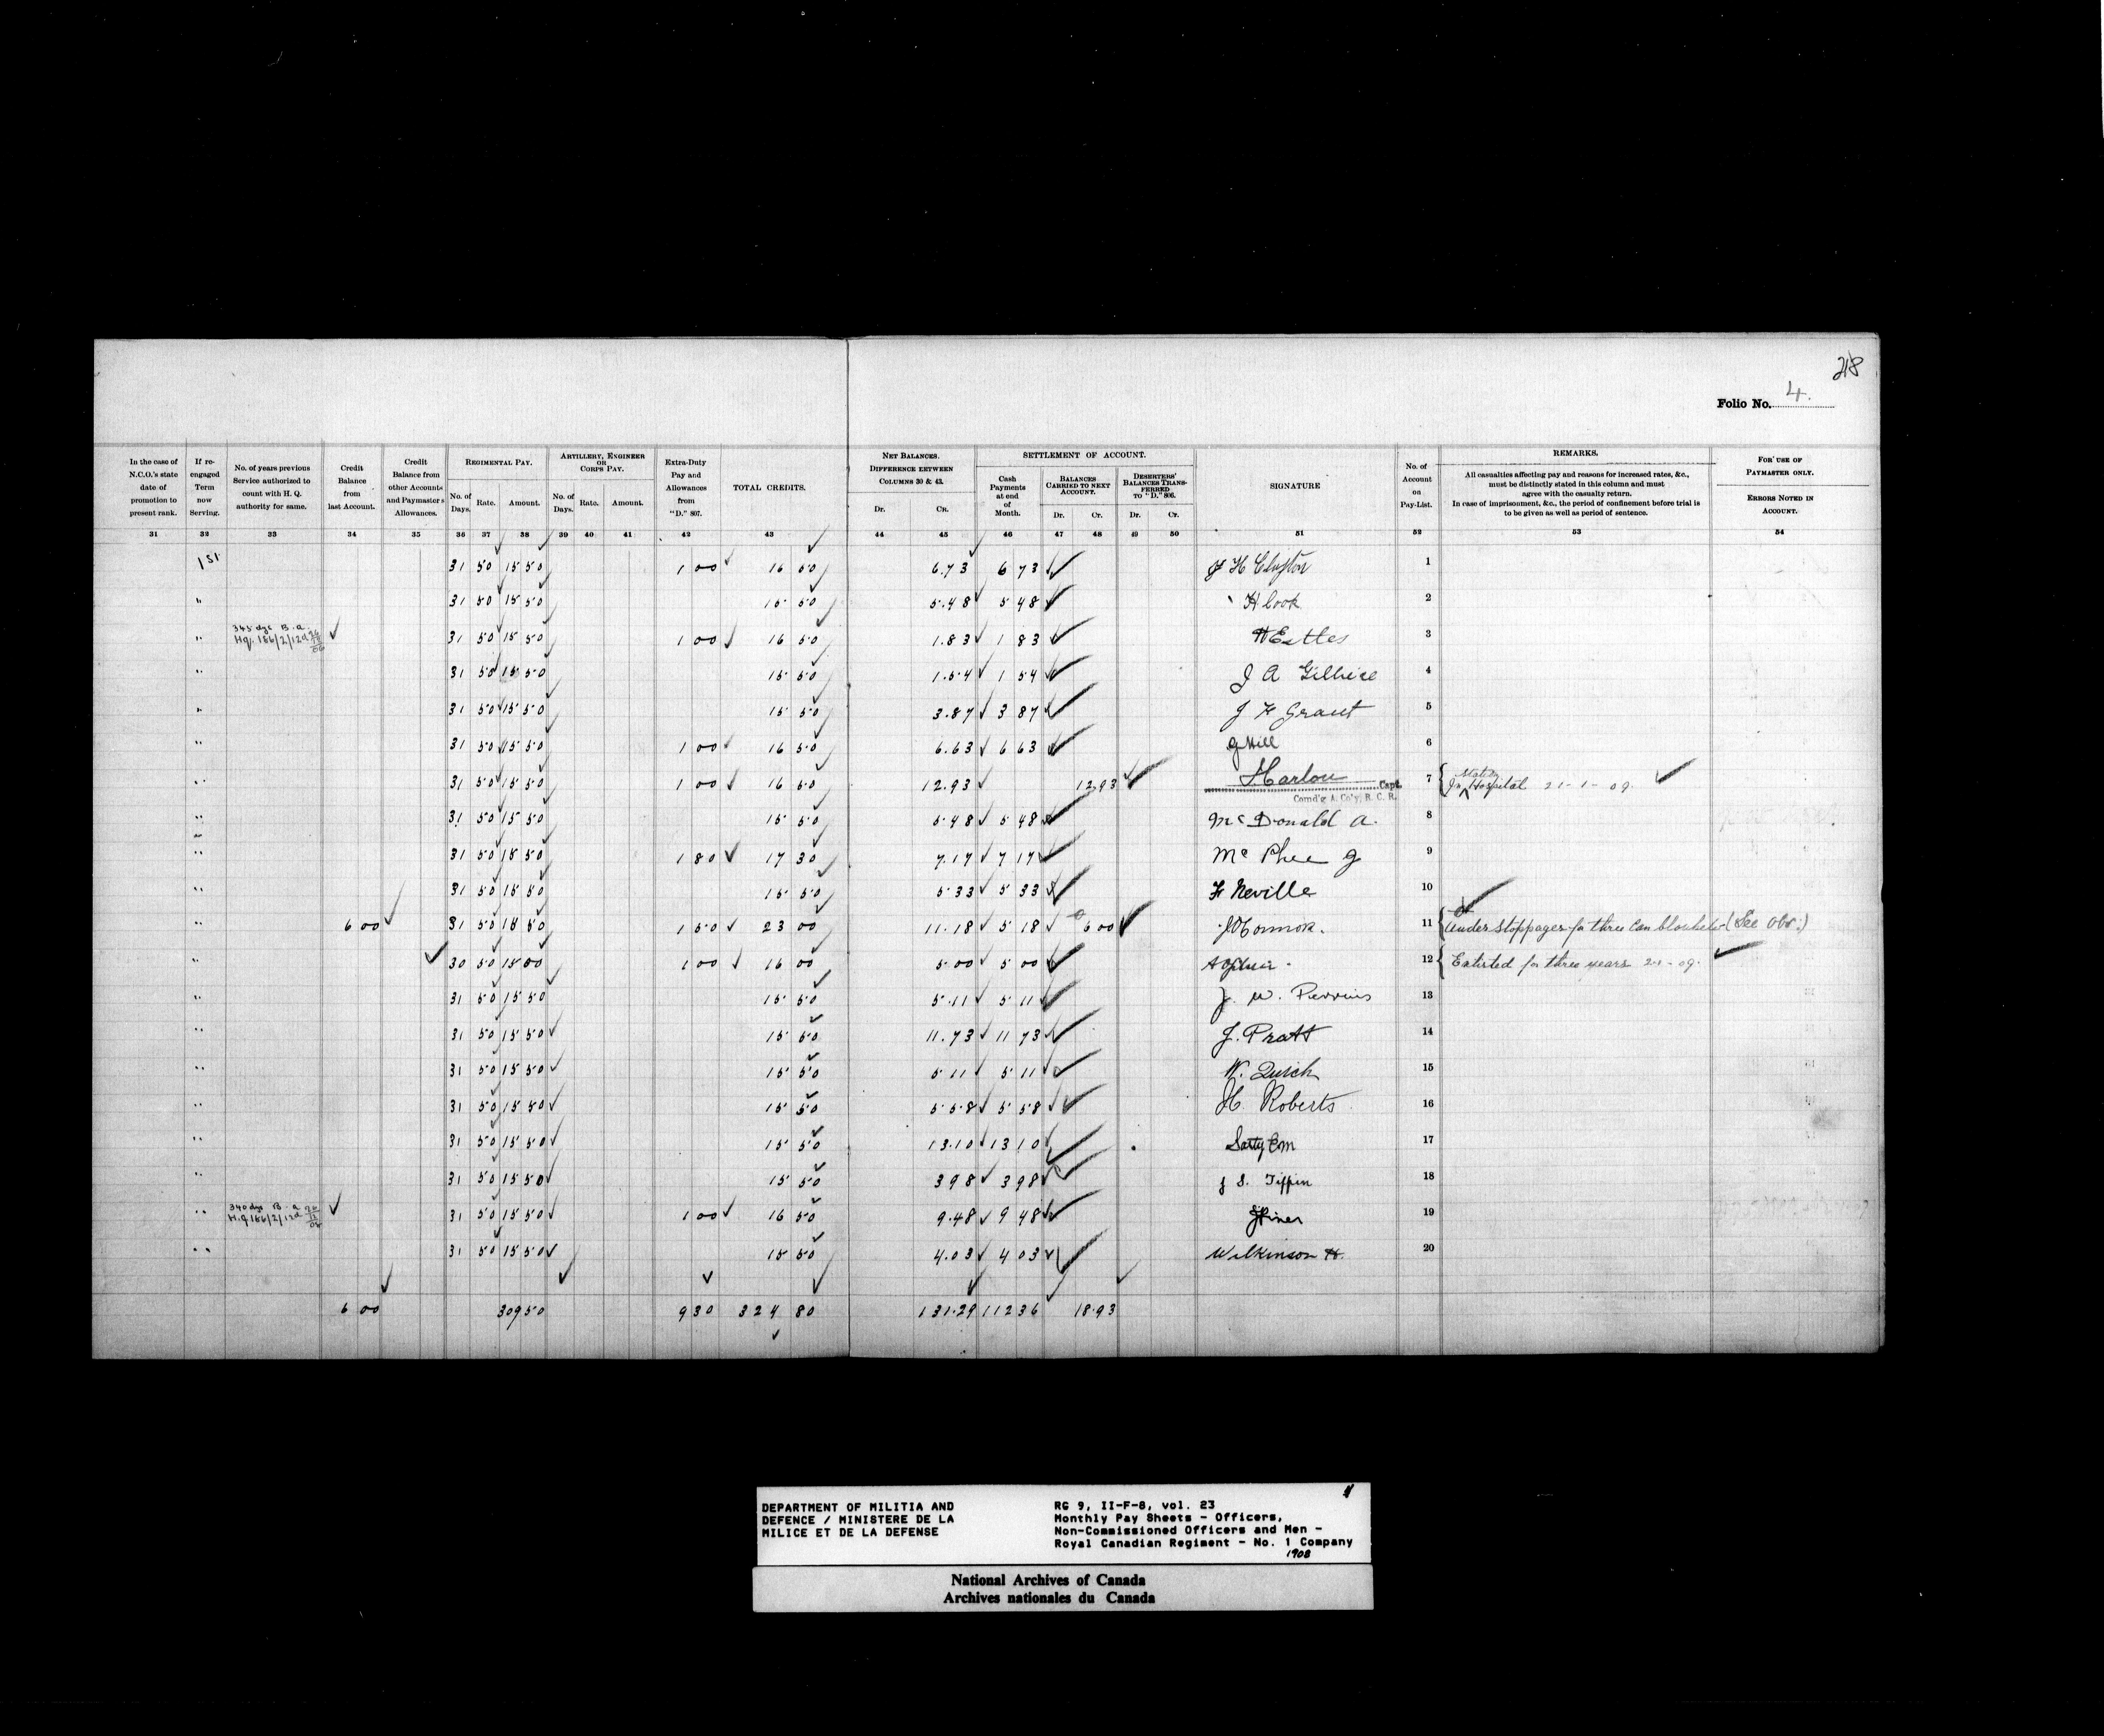 218
Folio No. 4.
In the case of N.C.O.'s state date of promotion to present rank.
If re-engaged Term now Serving.
No. of years previous Service authorized to count with H. Q. authority for same.
Credit Balance from last Account.
Credit Balance from other Accounts and Paymasters Allowances.
REGIMENTAL PAY.
No. of Days. Rate. Amount.
ARTILLERY, ENGINEER OR CORPS PAY.
No. of Days. Rate. Amount.
Extra-Duty Pay and Allowances from "D." 807.
TOTAL CREDITS.
NET BALANCES. DIFFERENCE BETWEEN COLUMNS 30 & 43.
Dr. Cr.
SETTLEMENT OF ACCOUNT.
Cash Payments at end of Month.
BALANCES CARRIED TO NEXT ACCOUNT.
Dr. Cr.
DESERTERS' BALANCES TRANSFERRED TO "D." 806.
Dr. Cr.
SIGNATURE
No. of Account on Pay-List.
REMARKS.
All casualties affecting pay and reasons for increased rates, &c.,
must be distinctly stated in this column and must
agree with the casualty return.
In case of imprisonment, &c., the period of confinement before trial is
to be given as well as period of sentence.
FOR USE OF PAYMASTER ONLY.
ERRORS NOTED IN ACCOUNT.
31 32 33 34 35 36 37 38 39 40 41 42 43 44 45 46 47 48 49 50 51 52 53 54
1st 31 50 15 50 1 00 16 50 6.73 6 73 H Clayton 1
" 31 50 15 50 15 50 5.48 5 48 H Cook 2
" 345 dys B.a. Hq. 186/2/12d 31 50 15 50 1 00 16 50 1.83 1 83 H Estles 3
" 31 50 15 50 15 50 1.54 1 54 J A Gillice 4
" 31 50 15 50 15 50 3.87 3 87 J F Grant 5
" 31 50 15 50 1 00 16 50 6.63 6 63 G Hill 6
" 31 50 15 50 1 00 16 50 12.93 12.93 Capt. Comd'g A. Co'y, R. C. R. 7 In Hospital 21-1-09.
" 31 50 15 50 15 50 5.48 5 48 McDonald A. 8
" 31 50 15 50 1 80 17 30 7.17 7 17 McPhee J 9
" 31 50 15 50 15 50 5.33 5 33 F Neville 10
" 6 00 31 50 15 50 1 50 23 00 11.18 5 18 6 00 J O'Connor. 11 Under stoppages for three (See Obv.)
" 30 50 15 00 1 00 16 00 5.00 5 00 12 Enlisted for three years 2-1-09.
" 31 50 15 50 15 50 5.11 5 11 J. W. Perrins 13
" 31 50 15 50 15 50 11.73 11 73 J. Pratt 14
" 31 50 15 50 15 50 5.11 5 11 W. Quick 15
" 31 50 15 50 15 50 5.58 5 58 H Roberts 16
" 31 50 15 50 15 50 13.10 13 10 Satty E M 17
" 31 50 15 50 15 50 3 98 3 98 J S. Tippin 18
" 340 dys B.a H.q 186/2/12d 31 50 15 50 1 00 16 50 9.48 9 48 19
" 31 50 15 50 15 50 4.03 4 03 Wilkinson H. 20
6 00 309 50 9 30 324 80 131.29 112 36 18.93
DEPARTMENT OF MILITIA AND
DEFENCE / MINISTERE DE LA
MILICE ET DE LA DEFENSE
RG 9, II-F-8, vol. 23
Monthly Pay Sheets - Officers,
Non-Commissioned Officers and Men -
Royal Canadian Regiment - No. 1 Company
1908
National Archives of Canada
Archives nationales du Canada